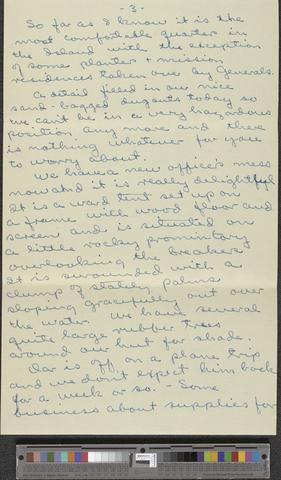 - 3 -
So far as I know it is the
most comfortable quarter in
the Island with the exception
of some planter + mission
residences taken over by Generals.
A detail filled in our nice
sand-bagged dugouts today so
we can't be in a very hazardous
position any more and there
is nothing whatever for you
to worry about.
We have a new officer's mess
now and it is really delightful
It is a ward tent set up on
a frame with wood floor and
screen and is situated on
a little rocky promintory
overlooking the breakers
It is surounded with a
clump of stately palms
sloping gracefully out over
the water. We have several
quite large rubber trees
around our hut for shade.
is off on a plane trip
and we don't expect him back
for a week or so. - Some
business about supplies for